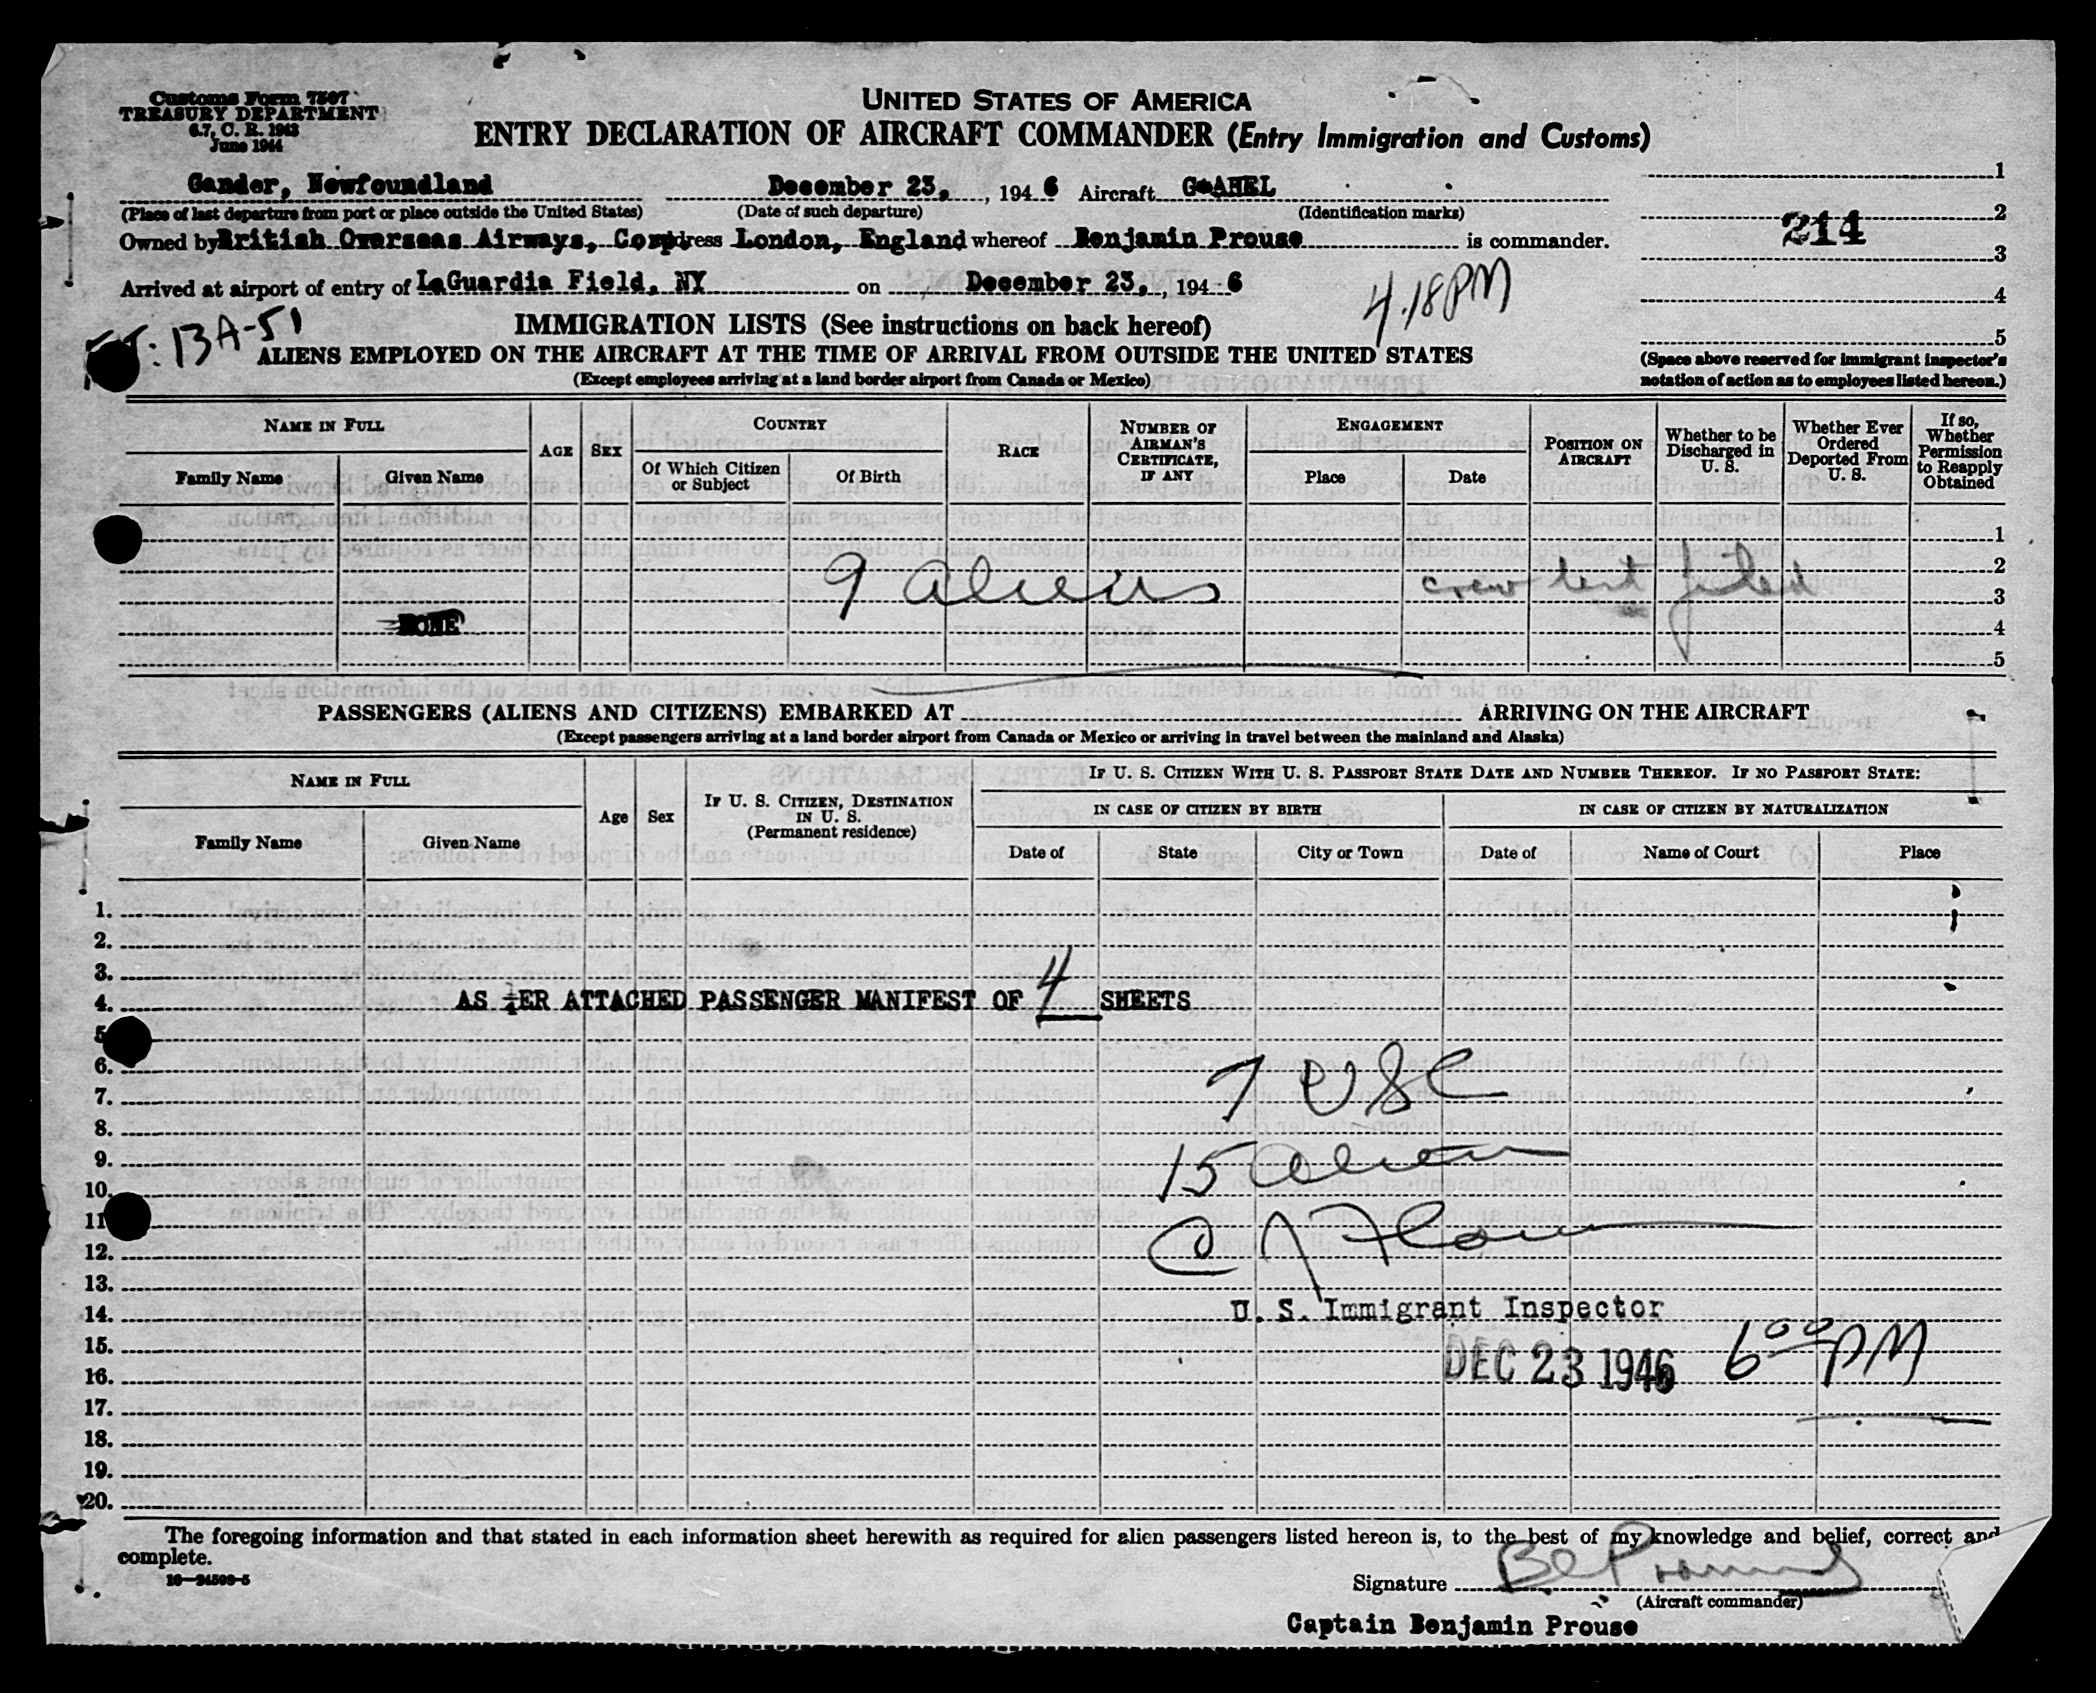 Customs Form 7507
TREASURY DEPARTMENT
6.7, C. R. 1943
June 1944
UNITED STATES OF AMERICA
ENTRY DECLARATION OF AIRCRAFT COMMANDER (Entry Immigration and Customs)
Gander, Newfoundland December 23, , 194 6 Aircraft G-AHEL
(Place of last departure from port or place outside the United States) (Date of such departure) (Identification marks)
Owned by British Overseas Airways, Corp. London, England whereof Benjamin Prouse is commander.
Arrived at airport of entry of LaGuardia Field, NY on December 23, , 194 6
4.18 PM
1
2
214
3
4
5
(Space above reserved for immigrant inspector's
notation of action as to employees listed hereon.)
: 13A-51
IMMIGRATION LISTS (See instructions on back hereof)
ALIENS EMPLOYED ON THE AIRCRAFT AT THE TIME OF ARRIVAL FROM OUTSIDE THE UNITED STATES
(Except employees arriving at a land border airport from Canada or Mexico)
NAME IN FULL
Family Name Given Name
AGE SEX
COUNTRY
Of Which Citizen or Subject Of Birth
RACE
NUMBER OF AIRMAN'S CERTIFICATE, IF ANY
ENGAGEMENT
Place Date
POSITION ON AIRCRAFT
Whether to be Discharged in U. S.
Whether Ever Ordered Deported From U. S.
If so, Whether Permission to Reapply Obtained
1
2
9 aliens crew list filed
3
NONE
4
5
PASSENGERS (ALIENS AND CITIZENS) EMBARKED AT ARRIVING ON THE AIRCRAFT
(Except passengers arriving at a land border airport from Canada or Mexico or arriving in travel between the mainland and Alaska)
NAME IN FULL
Family Name Given Name
Age Sex
IF U. S. CITIZEN, DESTINATION IN U. S. (Permanent residence)
IF U. S. CITIZEN WITH U. S. PASSPORT STATE DATE AND NUMBER THEREOF. IF NO PASSPORT STATE:
IN CASE OF CITIZEN BY BIRTH IN CASE OF CITIZEN BY NATURALIZATION
Date of State City or Town Date of Name of Court Place
1.
2.
3.
4. AS PER ATTACHED PASSENGER MANIFEST OF 4 SHEETS
5
6.
7. 7 USC
8.
9.
10. 15 alien
11
12.
13.
14. U. S. Immigrant Inspector
15.
16. DEC 23 1946 6 00 PM
17.
18.
19.
20.
The foregoing information and that stated in each information sheet herewith as required for alien passengers listed hereon is, to the best of my knowledge and belief, correct and
complete.
16—24503-5
Signature B C Prouse
(Aircraft commander)
Captain Benjamin Prouse